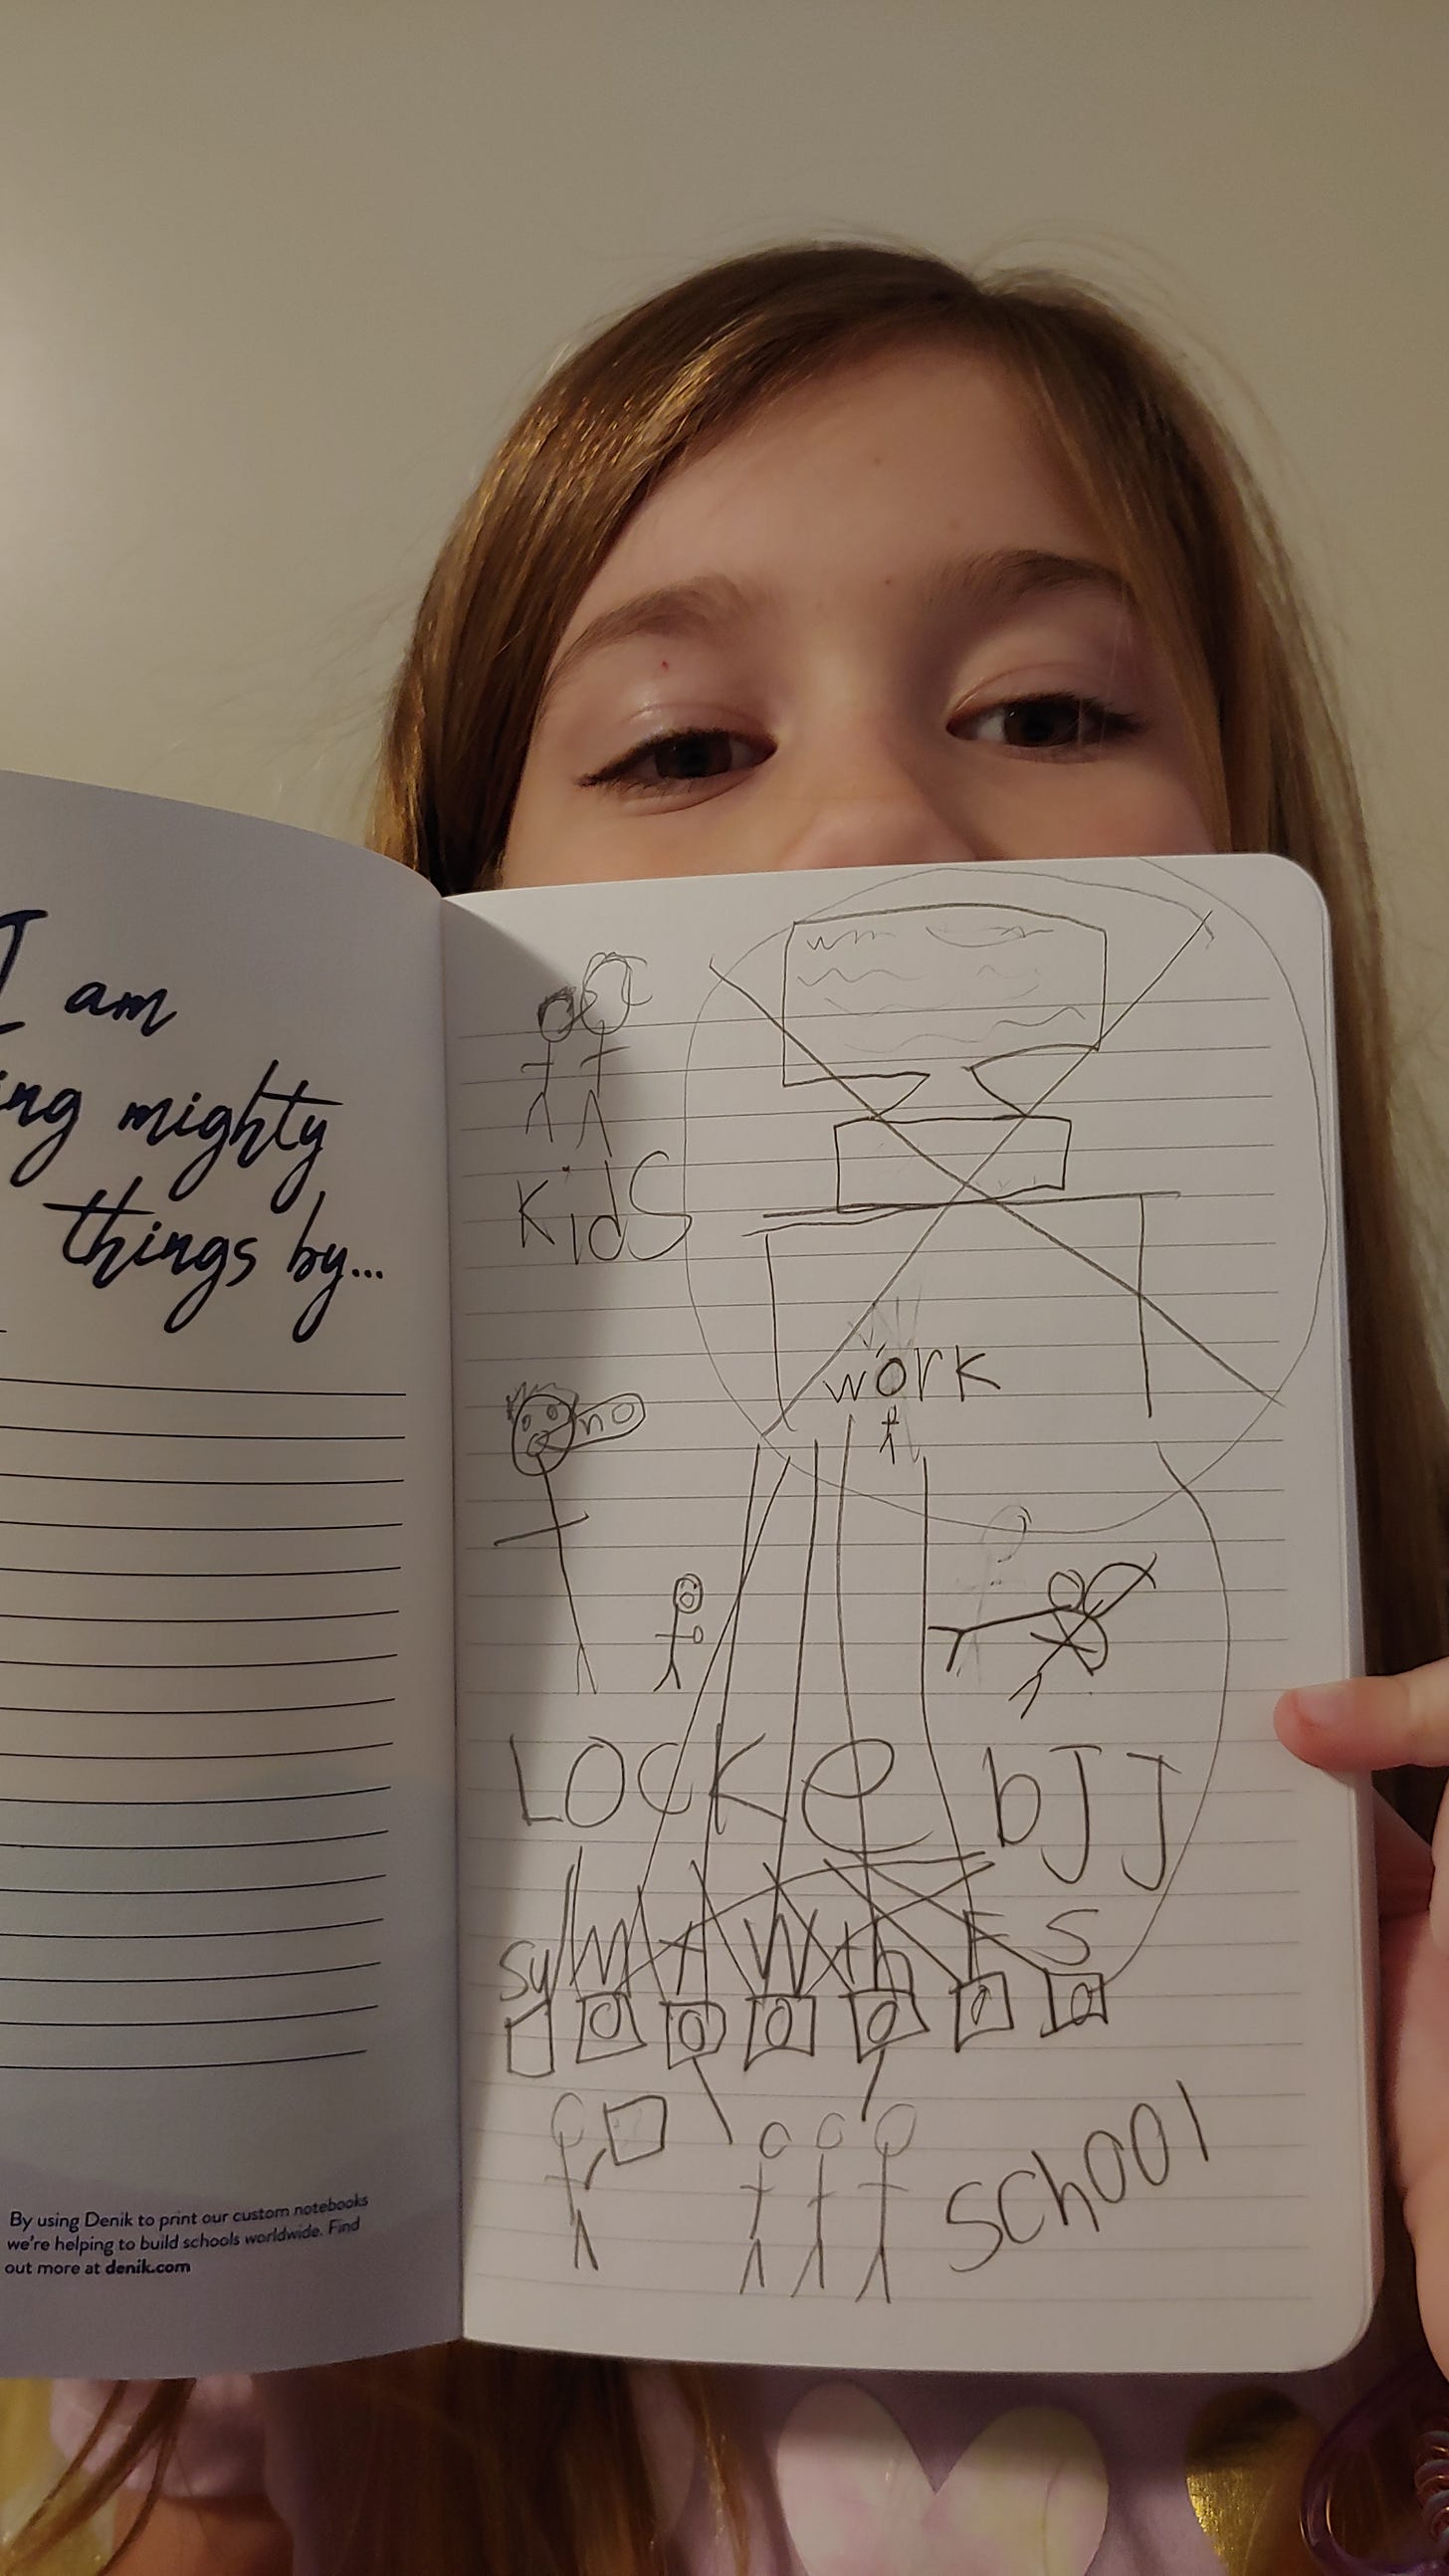 I am
ing mighty
things by...
By using Denik to print our custom notebooks
we're helping to build schools worldwide. Find
out more at denik.com
kidS
work
no
LOCKe
bJJ
Sy M t W th F S
School